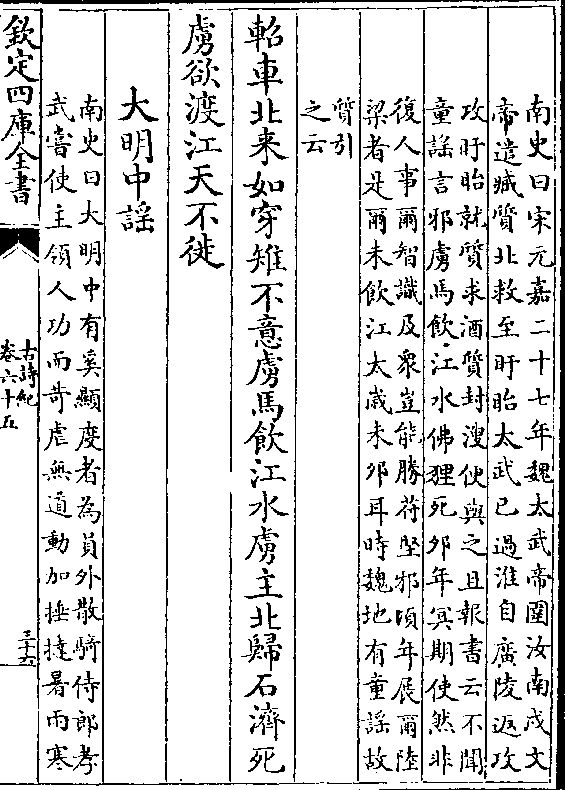 南史曰宋元嘉二十七年魏太武帝圍汝南戍文
帝遣臧質北救至盱眙太武已過淮自廣陵返攻
攻盱眙就質求酒質封溲便與之且報書云不聞
童謠言邪虜馬飲江水佛狸死卯年冥期使然非
復人事爾智識及衆豈能勝苻堅邪頃年展爾陸
梁者是爾未飲江太歲未卯耳時魏地有童謠故
質引
之云
軺車北来如穿雉不意虜馬飲江水虜主北歸石濟死
虜欲渡江天不徙
大明中謠
南史曰大明中有奚顯度者為員外散騎侍郎孝
武嘗使主領人功而苛虐無道動加捶撻暑雨寒
欽定四庫全書
古詩紀
卷六十五
三十六